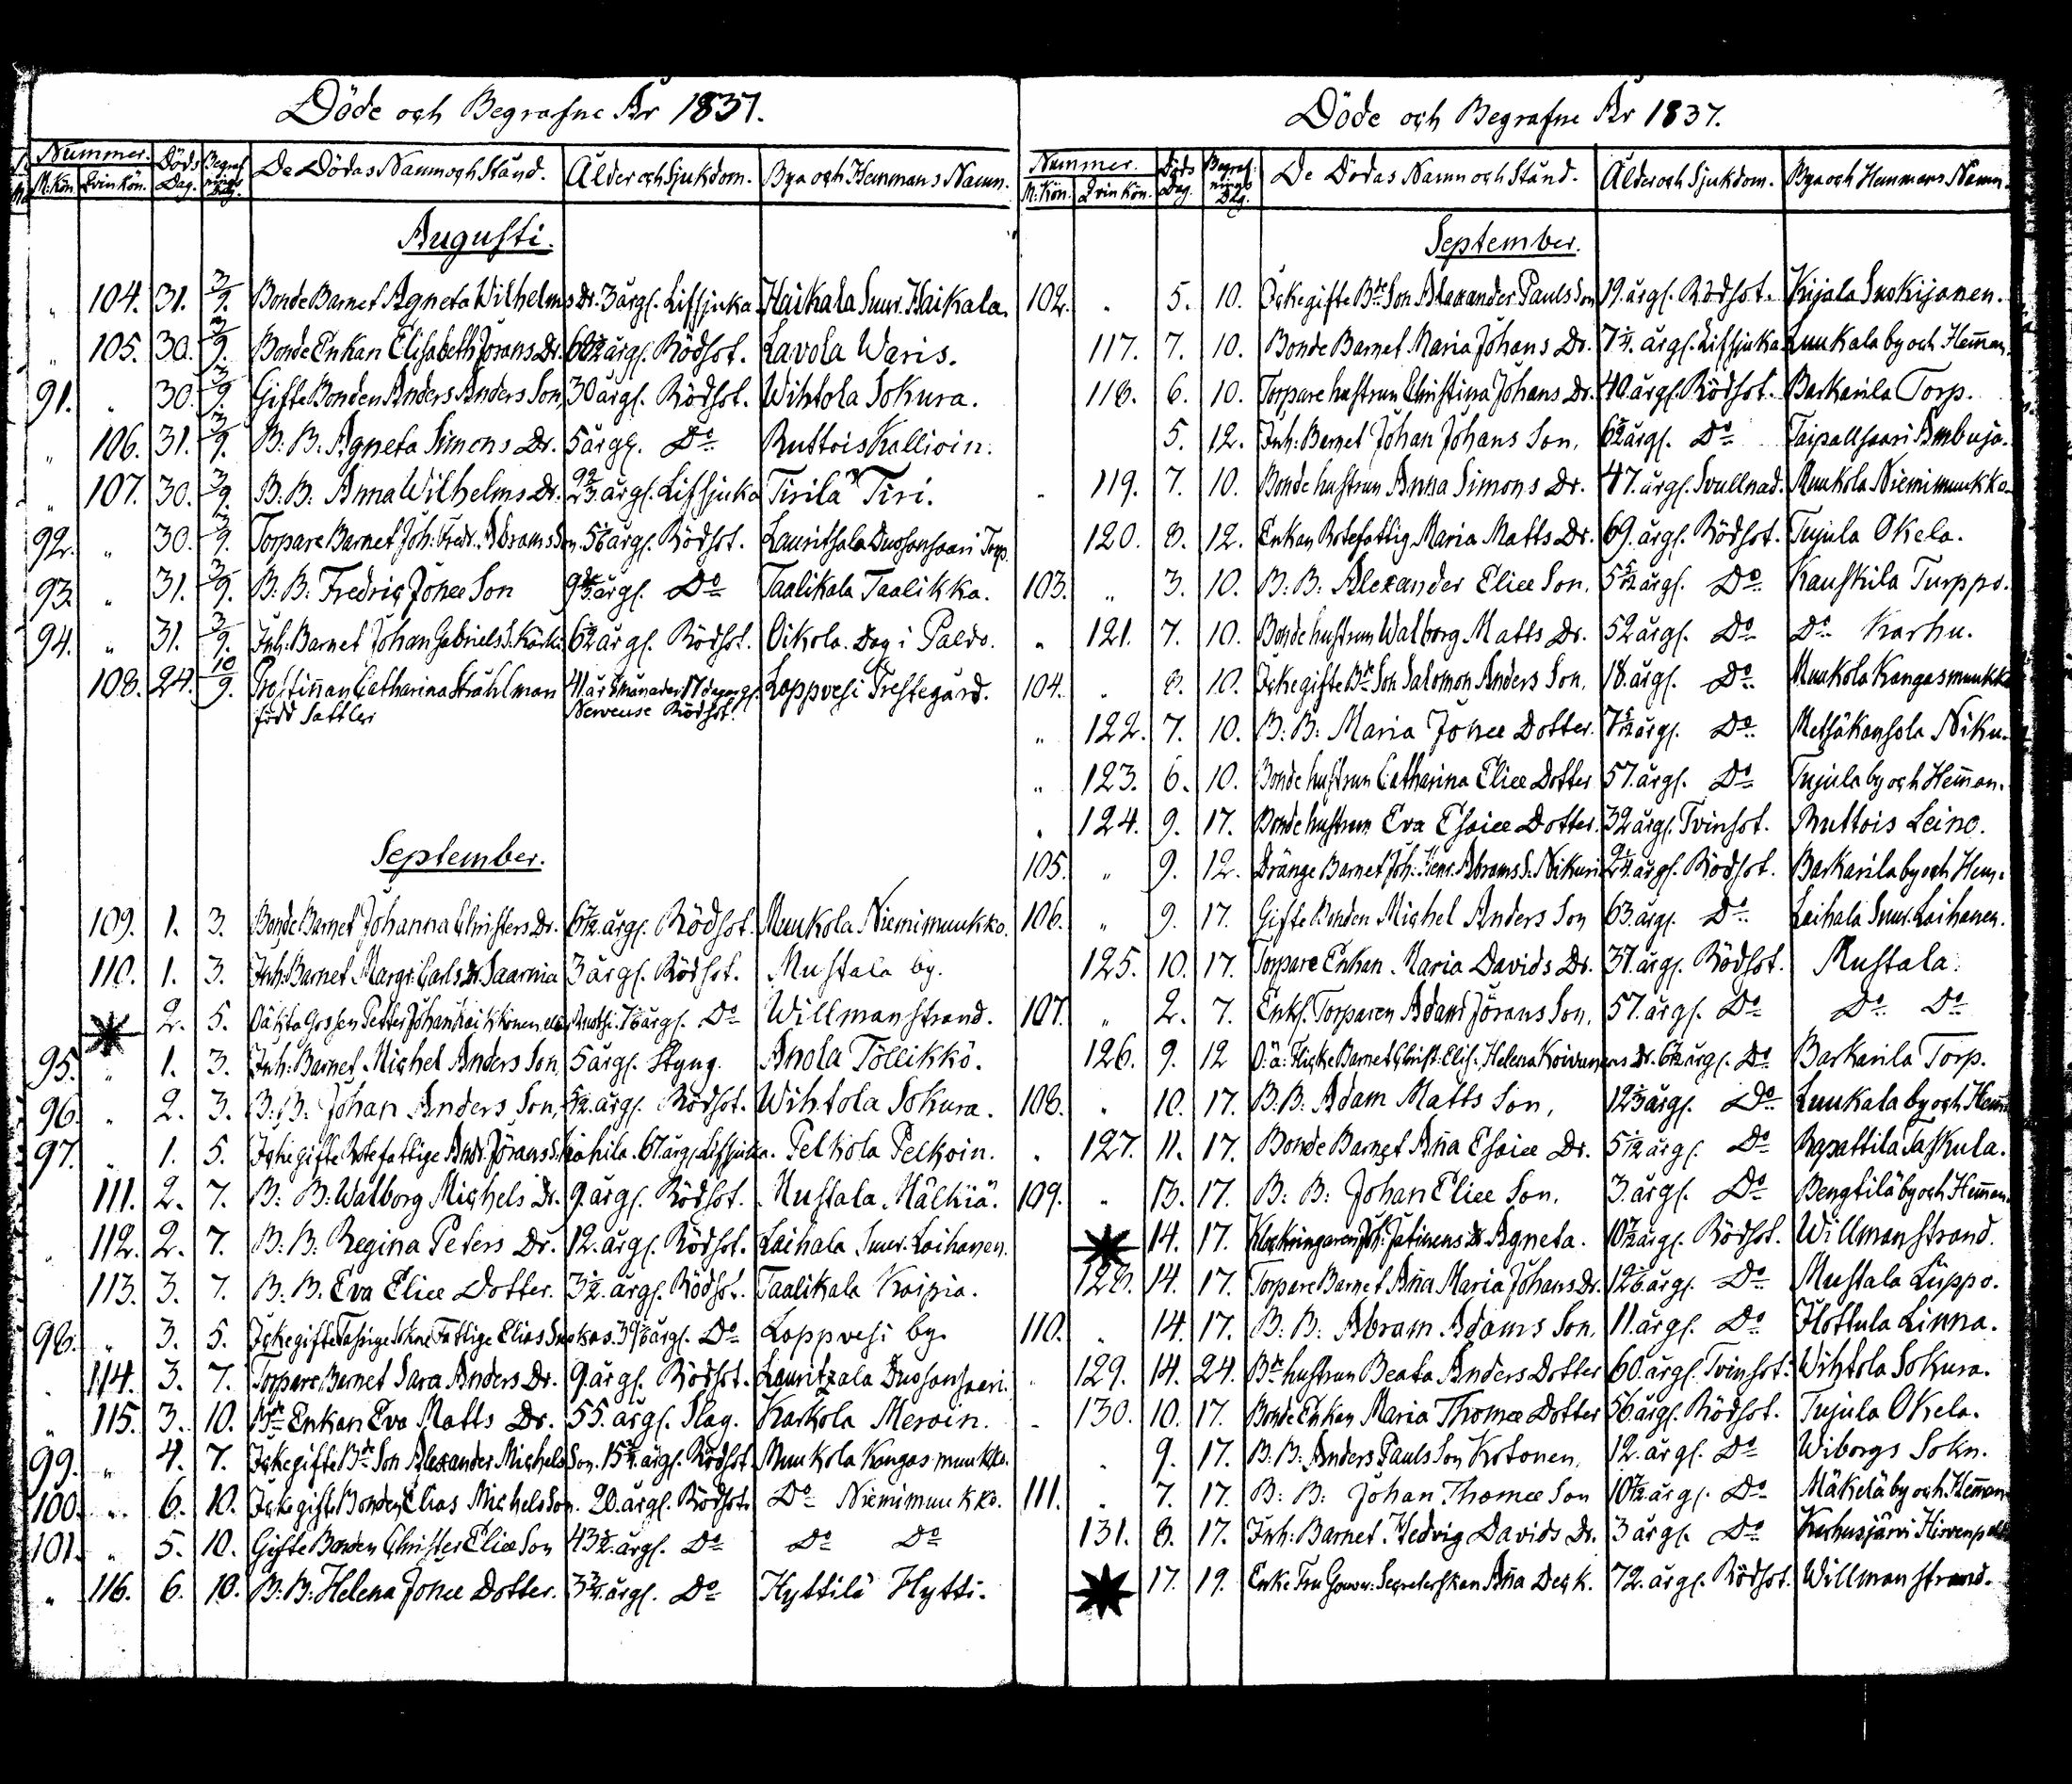 Döde och Begrafne År 1837.
Nummer. Döds Dag. Begrafnings Dag. De Dödas Namn och Stånd. Ålder och Sjukdom. Bya och Hemmans Namn.
M:Kön. Qvin Kön.
Augusti.
" 104. 31. 3/9. Bonde Barnet Agneta Wilhelms Dr. 3 årgl. Lifsjuka Haikala Suur. Haikala.
" 105. 30. 3/9. Bonde Enkan Elisabeth Jörans Dr. årgl. Rödsot. Lavola Waris.
91. " 30. 3/9. Gifte Bonden Anders Anders Son, 30 årgl. Rödsot. Wihtola Sokura.
" 106. 31. 3/9. B: B: Agneta Simons Dr. 5 årgl. Do Ruttois Kallioin.
" 107. 30. 3/9. B: B: Anna Wilhelms Dr. årgl. Lifsjuka Tirilä Tiri.
92. " 30. 3/9. Torpare Barnet Joh: Fredr. Abrams Son. årgl. Rödsot. Lauritsala Duosonsaari Torp.
93. " 31. 3/9. B: B: Fredric Johee Son årgl. Do Taalikala Taalikka.
94. " 31. 3/9. Inh: Barnet Johan Gabriels S. årgl. Rödsot. Oikola. Dog i Paldo.
108. 24. 10/9. Prostinnan Catharina Stråhlman 41. år 8 månader 17 dagar gl. Loppvesi Prestegård.
född Sattler Nerveuse Rödsot.
September.
109. 1. 3. Bonde Barnet Johanna Christers Dr. årgl. Rödsot. Muukola Niemimuukko.
110. 1. 3. Inh: Barnet Margr: Carls Dr. Saarnia 3 årgl. Rödsot. Mustala by.
2. 5. Gossen Petter Johan årgl. Do Willmanstrand.
95. " 1. 3. Inh: Barnet Michel Anders Son, 5 årgl. Styng. Anola Töllikkö.
96. " 2. 3. B: B: Johan Anders Son, årgl. Rödsot. Wihtola Sokura.
97. " 1. 5. Ickegifte Rotefattige Andr. Jörans S. 67. årgl. Lifsjuka. Pelkola Pelkoin.
111. 2. 7. B: B: Walborg Michels Dr. 9. årgl. Rödsot. Mustala Mälkiä.
112. 2. 7. B: B: Regina Peters Dr. 12. årgl. Rödsot. Laihala Suur. Laihanen.
113. 3. 7. B: B. Eva Eliee Dotter. 3½. årgl. Rödsot. Taalikala Kaipia.
98. " 3. 5. Ickegifte Fattige Elias årgl. Do Loppvesi by.
114. 3. 7. Torpare Barnet Sara Anders Dr. 9. årgl. Rödsot. Lauritzala Duosonsaari.
" 115. 3. 10. Bde Enkan Eva Matts Dr. 55. årgl. Slag. Karkola Meroin.
99. " 4. 7. Ickegifte Bde Son Alexander Michels Son. årgl. Rödsot. Muukola Kangas muukko.
100. " 6. 10. Ickegifte Bonden Elias Michels Son. 20. årgl. Rödsot. Do Niemimuukko.
101. " 5. 10. Gifte Bonden Christer Eliee Son 43½. årgl. Do Do Do
" 116. 6. 10. B: B: Helena Johee Dotter. 3¾. årgl. Do Hyttilä Hytti.
Döde och Begrafne År 1837.
Nummer. Döds Dag. Begrafnings Dag. De Dödas Namn och Stånd. Ålder och Sjukdom. Bya och Hemmans Namn.
M:Kön. Qvin Kön.
September.
102. " 5. 10. Ickegifte Bde Son Alexander Pauls Son 19. årgl. Rödsot. Kijala Suokijanen.
117. 7. 10. Bonde Barnet Maria Johans Dr. 7¼. årgl. Lifsjuka Luukala by och Hem̄an.
118. 6. 10. Torpare hustrun Christina Johans Dr. 40. årgl. Rödsot. Barkarila Torp.
5. 12. Inh: Barnet Johan Johans Son, årgl. Do Taipallsaari Ambuja.
119. 7. 10. Bonde hustrun Anna Simons Dr. 47. årgl. Svullnad. Muukola Niemimuukko.
120. 8. 12. Enkan Rotefattig Maria Matts Dr. 69. årgl. Rödsot. Tujula Okela.
103. " 3. 10. B: B: Alexander Eliee Son, årgl. Do Kauskila Turppo.
" 121. 7. 10. Bonde hustrun Walborg Matts Dr. 52 årgl. Do Do Karhu.
104. " 8. 10. Ickegifte Bde Son Salomon Anders Son, 18. årgl. Do Muukola Kangasmuukko
" 122. 7. 10. B: B: Maria Johee Dotter. årgl. Do Metsäkansola Niku.
" 123. 6. 10. Bonde hustrun Catharina Eliee Dotter 57. årgl. Do Tujula by och Hem̄an.
" 124. 9. 17. Bonde hustrun Eva Esaiee Dotter. 32 årgl. Tvinsot. Ruttois Leino.
105. " 9. 12. Dränge Barnet Joh: Henr. Abrams S. Nikuri årgl. Rödsot. Barkarila by och Hem.
106. " 9. 17. Gifte Bonden Michel Anders Son 63 årgl. Do Laihala Suur. Laihanen.
125. 10. 17. Torpare Enkan Maria Davids Dr. 37. årgl. Rödsot. Mustala.
107. " 2. 7. Enkl. Torparen Adam Jörans Son, 57. årgl. Do Do Do
126. 9. 12 O: ä: Flicke Barnet Christ: Elis: Helena Koivunens Dr. årgl. Do Barkarila Torp.
108. " 10. 17. B: B: Adam Matts Son, årgl. Do Luukala by och Hem̄
" 127. 11. 17. Bonde Barnet An̄a Esaiee Dr. årgl. Do Rapattila Taskula.
109. " 13. 17. B: B: Johan Eliee Son, 3. årgl. Do Bengtilä by och Hem̄an.
14. 17. Klockringaren Joh: Dr. Agneta. årgl. Rödsot. Willmanstrand.
128. 14. 17. Torpare Barnet An̄a Maria Johans Dr. årgl. Do Mustala Lüppo.
110. " 14. 17. B: B: Abram Adams Son, 11. årgl. Do Ilottula Linna.
129. 14. 24. Bde hustrun Beata Anders Dotter 60. årgl. Tvinsot. Wihtola Sokura.
130. 10. 17. Bonde Enkan Maria Thomee Dotter 56 årgl. Rödsot. Tujula Okela.
9. 17. B: B: Anders Pauls Son Kotonen, 12. årgl. Do Wiborgs Sokn.
111. " 7. 17. B: B: Johan Thomee Son årgl. Do Mäkelä by och Hem̄an
131. 8. 17. Inh: Barnet Hedvig Davids Dr. 3 årgl. Do Karhusjärvi
17. 19. Enke Fru Gouver: Secreterskan An̄a Deck. 72. årgl. Rödsot. Willmanstrand.